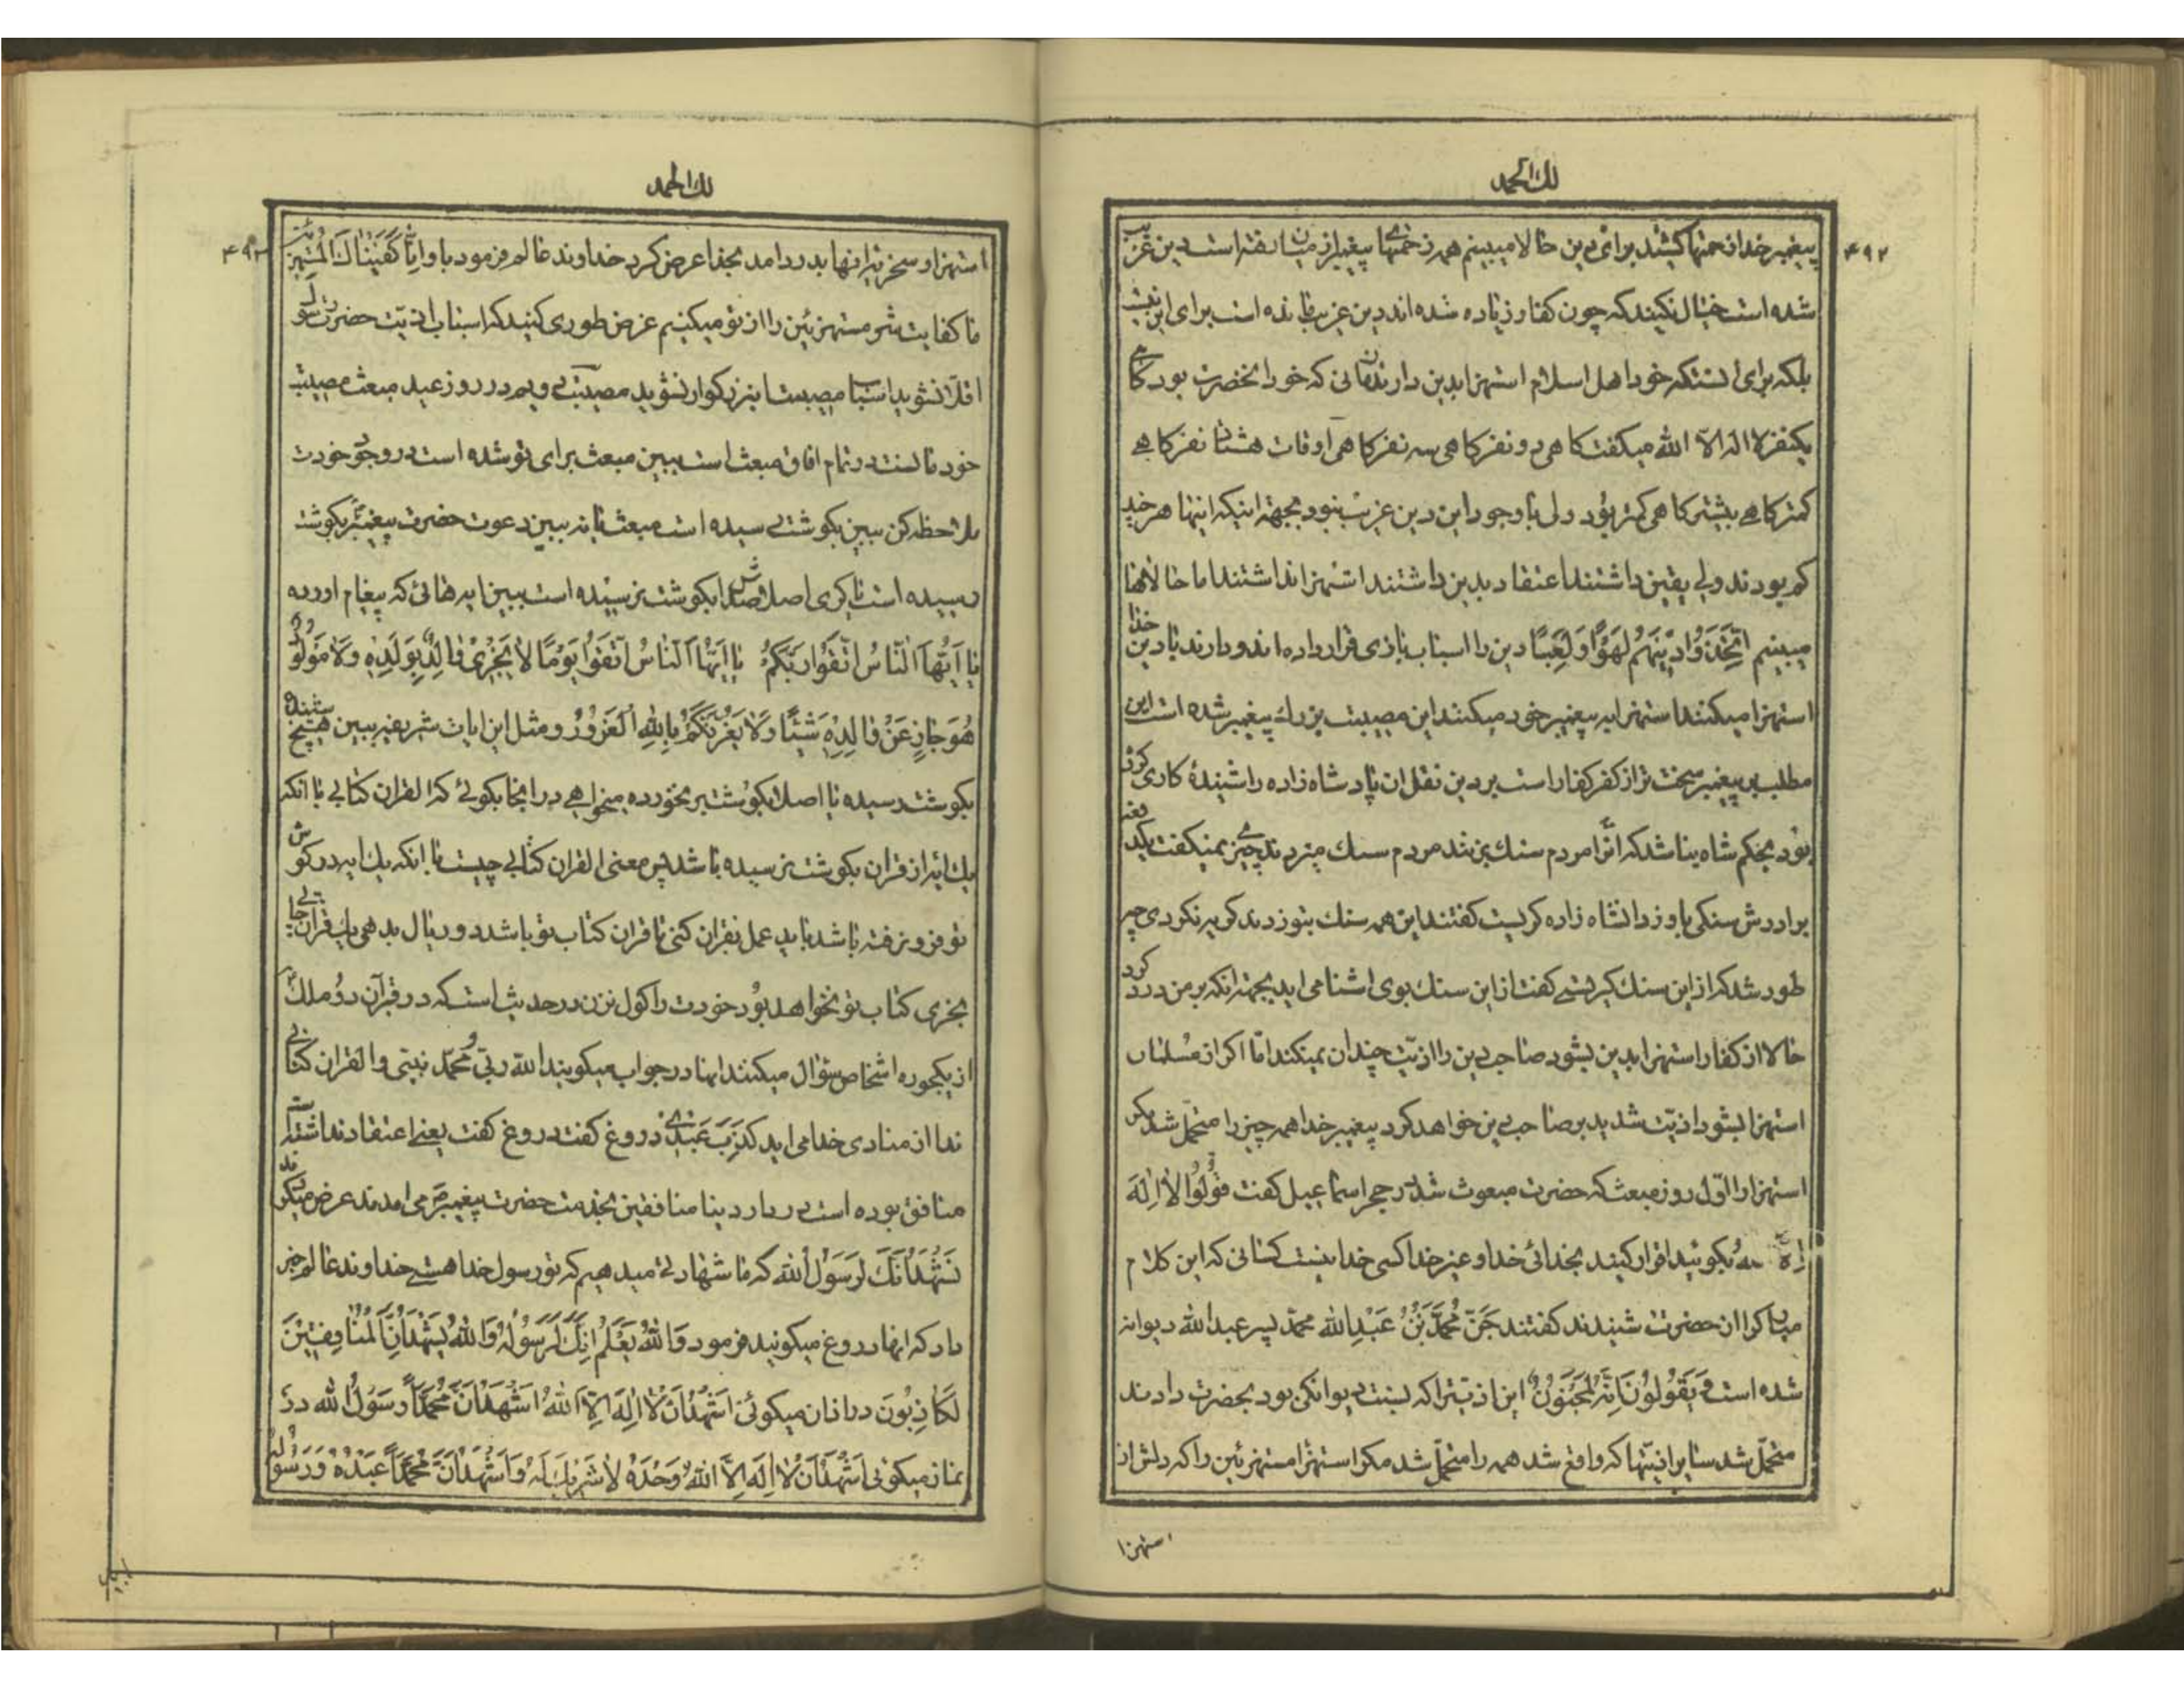 لك الحمد
۴۹۲
پیغمبر خدا زحمتها کشید برای دین حالا میبینم همه زحمتهای پیغمبر از میان رفته است دین غریب
شده است خیال نکنید که چون کفار زیاده شده اند دین غریب مانده است برای این نیست
بلکه برای اینستکه خود اهل اسلام استهزا بدین دارند زمانی که خود آنحضرت بود گاهی
یکنفر لا اله الا الله میگفت گاهی دو نفر گاهی سه نفر گاهی اوقات هشتاد نفر گاهی
کمتر گاهی بیشتر گاهی کمتر بود ولی با وجود این دین غریب نبود بجهة اینکه اینها هر چند
کم بودند ولی یقین داشتند اعتقاد بدین داشتند استهزا نداشتند اما حالا ها
میبینم اِتَّخَذُوا دِينَهُمْ لَهْوًا وَلَعِبًا دین را اسباب بازی قرار داده اند و دارند با دین خدا
استهزا میکنند استهزا به پیغمبر خود میکنند این مصیبت بزرك پیغمبر شده است این
مطلب بر پیغمبر سخت تر از کفر کفار است بر دین نقل ان پادشاه زاده را شنیدۀ کاری کرده
بود بحکم شاه بنا شد که انرا مردم سنك بزنند مردم سنك میزدند چیزی نمیگفت یکدفعه
برادرش سنگی باو زد انشاه زاده گریست گفتند این همه سنك بتو زدند گریه نکردی چه
طور شد که از این سنك گریستی گفت از این سنك بوی اشنا می اید بجهة انکه بر من درد کرد
حالا از کفار استهزا بدین بشود صاحب دین را اذیّت چندان نمیکند امّا اگر از مسلمان
استهزا بشود اذیّت شدید بر صاحب دین خواهد کرد پیغمبر خدا همه چیز را متحمّل شد مگر
استهزا را اوّل روز مبعث که حضرت مبعوث شد در حجر اسماعیل گفت قُولُوا لا اِلهَ
اِلّا اللهُ بگوئید اقرار کنید بخدائی خدا و غیر خدا کسی خدا نیست کسانی که این کلام
مبارك را از ان حضرت شنیدند گفتند جَنَّ مُحَمَّدُ بْنُ عَبْدِ الله محمّد پسر عبد الله دیوانه
شده است وَيَقُولُونَ اِنَّهُ لَمَجْنُونٌ این اذیّت را که نسبت دیوانگی بود بحضرت دادند
متحمّل شد سایر اذیّتها که واقع شد همه را متحمّل شد مگر استهزا مستهزئین را که دلش از
استهزا
لك الحمد
۴۹۳
استهزا و سخریّه انها بدرد امد بخدا عرض کرد خداوند عالم فرمود باو اِنّا كَفَيْناكَ الْمُسْتَهْزِئينَ
ما کفایت شر مستهزئین را از تو میکنیم غرض طوری کنید که اسباب اذیّت حضرت رسول
اقلّا نشوید اسباب مصیبت این بزرگوار نشوید مصیبت دویم در روز عید مبعث مصیبت
خود ما است در تمام افاق مبعث است ببین مبعث برای تو شده است در وجود خودت
ملاحظه کن ببین بگوشت رسیده است مبعث یا نه ببین دعوت حضرت پیغمبر بگوشت
رسیده است یا کری اصلا صدایش بگوشت نرسیده است ببین ایه هائی که پیغام اورده
يا اَيُّهَا النّاسُ اتَّقُوا رَبَّكُمْ يا اَيُّهَا النّاسُ اتَّقُوا يَوْمًا لا يَجْزِي والِدٌ بِوَلَدِهِ وَلا مَوْلُودٌ
هُوَ جازٍ عَنْ والِدِهِ شَيْئًا وَلا يَغُرَّنَّكُمْ بِاللهِ الْغَرُورُ و مثل این ایات شریفه ببین هیچ
بگوشت رسیده یا اصلا بگوشت بر نخورده میخواهی در انجا بگوئی که القران کتابی با انکه
یك ایه از قران بگوشت نرسیده باشد پس معنی القران کتابی چیست با انکه یك ایه در گوش
تو فرو نرفته باشد باید عمل بقران کنی تا قران کتاب تو باشد دو ریال بدهی یك قران
بخری کتاب تو نخواهد بود خودت را گول نزن در حدیث است که در قبر آن دو ملك
از یکجوره اشخاص سؤال میکنند اینها در جواب میگویند الله ربّی و محمّد نبیّی و القران کتابی
ندا از منادی خدا می اید كَذَبَ عَبْدي دروغ گفت دروغ گفت یعنی اعتقاد نداشته است
منافق بوده است در دار دینا منافقین بخدمت حضرت پیغمبر می امدند عرض میکردند
نَشْهَدُ اِنَّكَ لَرَسُولُ اللهِ که ما شهادت میدهیم که تو رسول خدا هستی خداوند عالم خبر
داد که انها دروغ میگویند فرمود وَاللهُ يَعْلَمُ اِنَّكَ لَرَسُولُهُ وَاللهُ يَشْهَدُ اِنَّ الْمُنافِقينَ
لَكاذِبُونَ در اذان میگوئی اَشْهَدُ اَنْ لا اِلهَ اِلَّا اللهُ اَشْهَدُ اَنَّ مُحَمَّدًا رَسُولُ الله در
نماز میگوئی اَشْهَدُ اَنْ لا اِلهَ اِلَّا اللهُ وَحْدَهُ لا شَريكَ لَهُ وَاَشْهَدُ اَنَّ مُحَمَّدًا عَبْدُهُ وَرَسُولُهُ